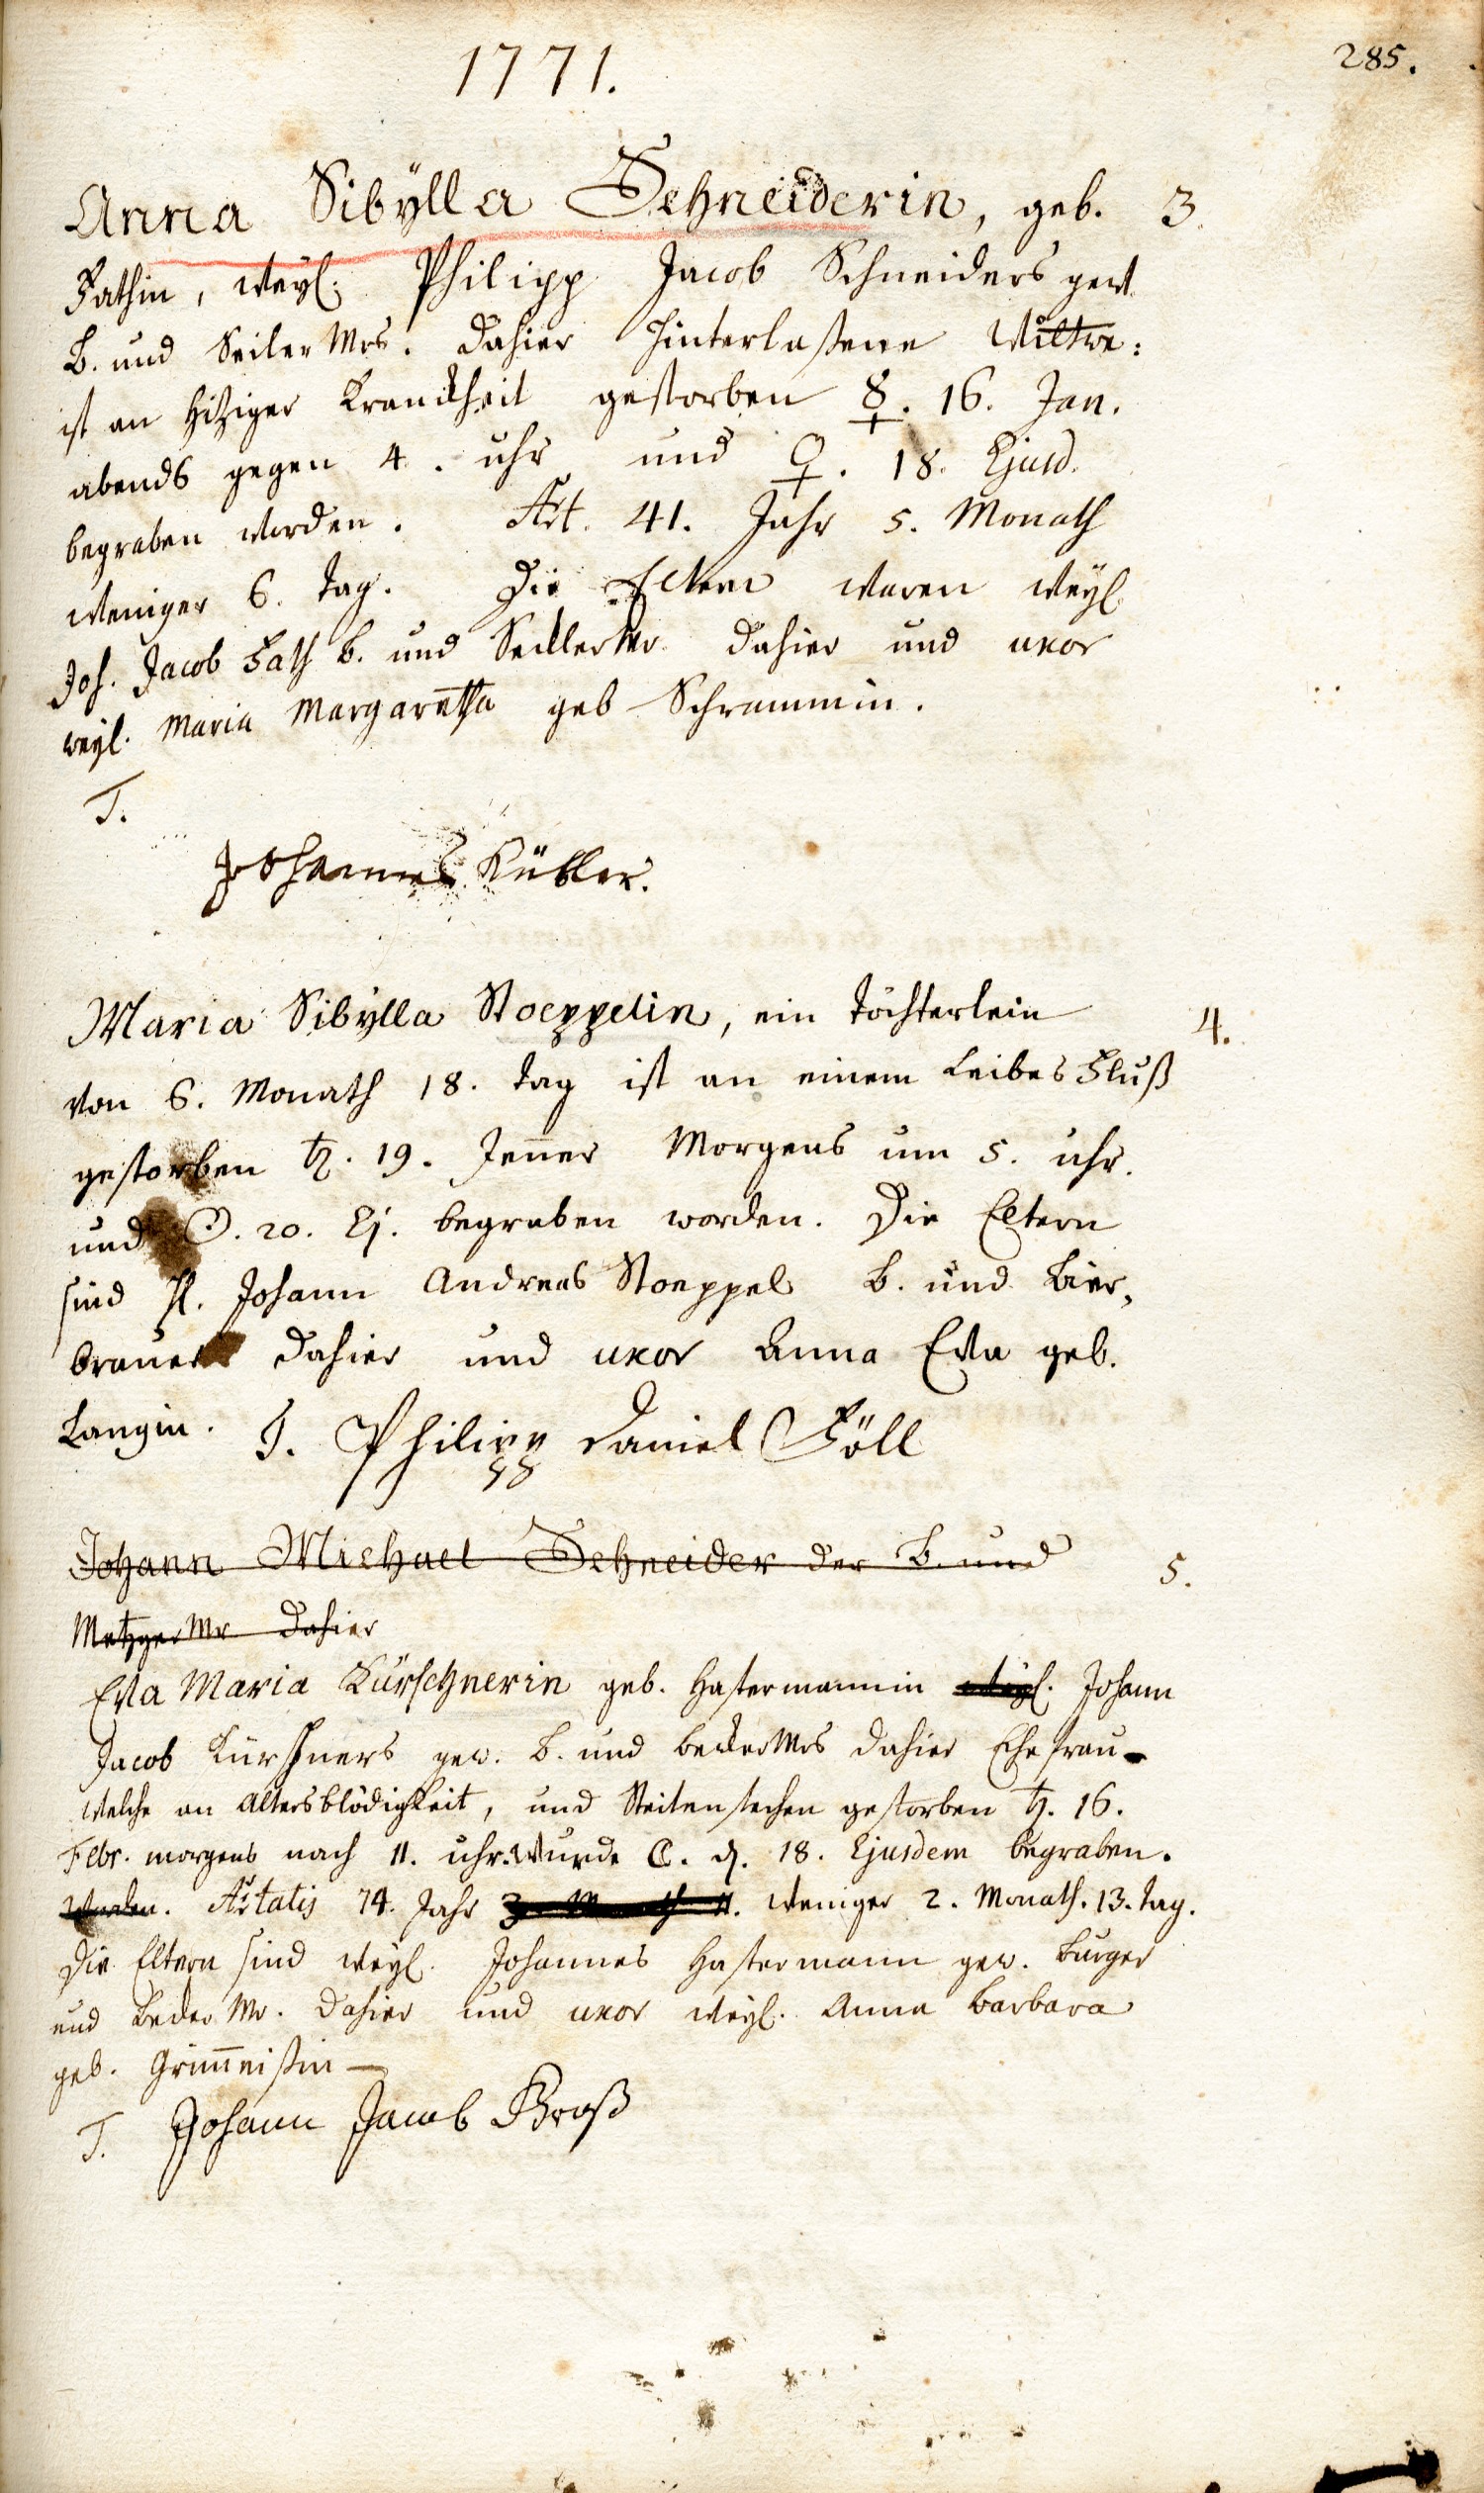 1771.
285.
Anna Sibÿlla Schneiderin, geb. 3.
Fathin, weyl. Philipp Jacob Schneiders gew.
B. und Seiler Mrs. dahier hinterlaßene Wittwe:
ist an hitziger Kranckheit gestorben ☿. 16. Jan.
abends gegen 4. uhr und ♀. 18. Ejusd.
begraben worden. Æt. 41. Jahr 5. Monath
weniger 6. tag. Die Eltern waren weyl.
Joh. Jacob Fath B. und Seiler Mr. dahier und uxor
weyl. Maria Margaretha geb Schrammin.
T.
Johannes Kübler.
Maria Sibÿlla Stoeppelin, ein töchterlein 4.
von 6. Monath 18. tag ist an einem Leibes Fluß
gestorben ♄. 19. Jen̄er Morgens um 5. uhr.
und ☉. 20. Ej. begraben worden. Die Eltern
sind H. Johann Andreas Stoeppel B. und Bier-
brauer dahier und uxor Anna Eva geb.
Langin. T. Philipp Daniel Föll
Johann Michael Schneider der B. und 5.
Metzger Mr dahier
Eva Maria Kürschnerin geb. Hastermannin weyl. Johann
Jacob Kürschners gew. B. und becker Mrs dahier Ehefrau
welche an Altersblödigkeit, und Steitenstechen gestorben ♄. 16.
Febr. morgens nach 11. uhr. Wurde ☾. d. 18. Ejusdem begraben.
worden. Ætatis 74. Jahr 3. Monath 11. weniger 2. Monath. 13. tag.
Die Eltern sind weyl. Johannes Hastermann gew. burger
und Becker Mr. dahier und uxor weyl. Anna Barbara
geb. Grim̄eißin
T. Johann Jacob Groß